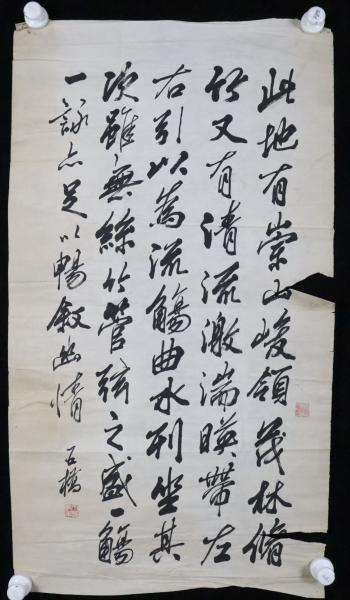 此地有崇山峻領茂林脩
竹又有清流激湍暎帶左
右引以為流觴曲水列坐其
次雖無絲竹管弦之盛一觴
一詠亦足以暢敘幽情
石橋